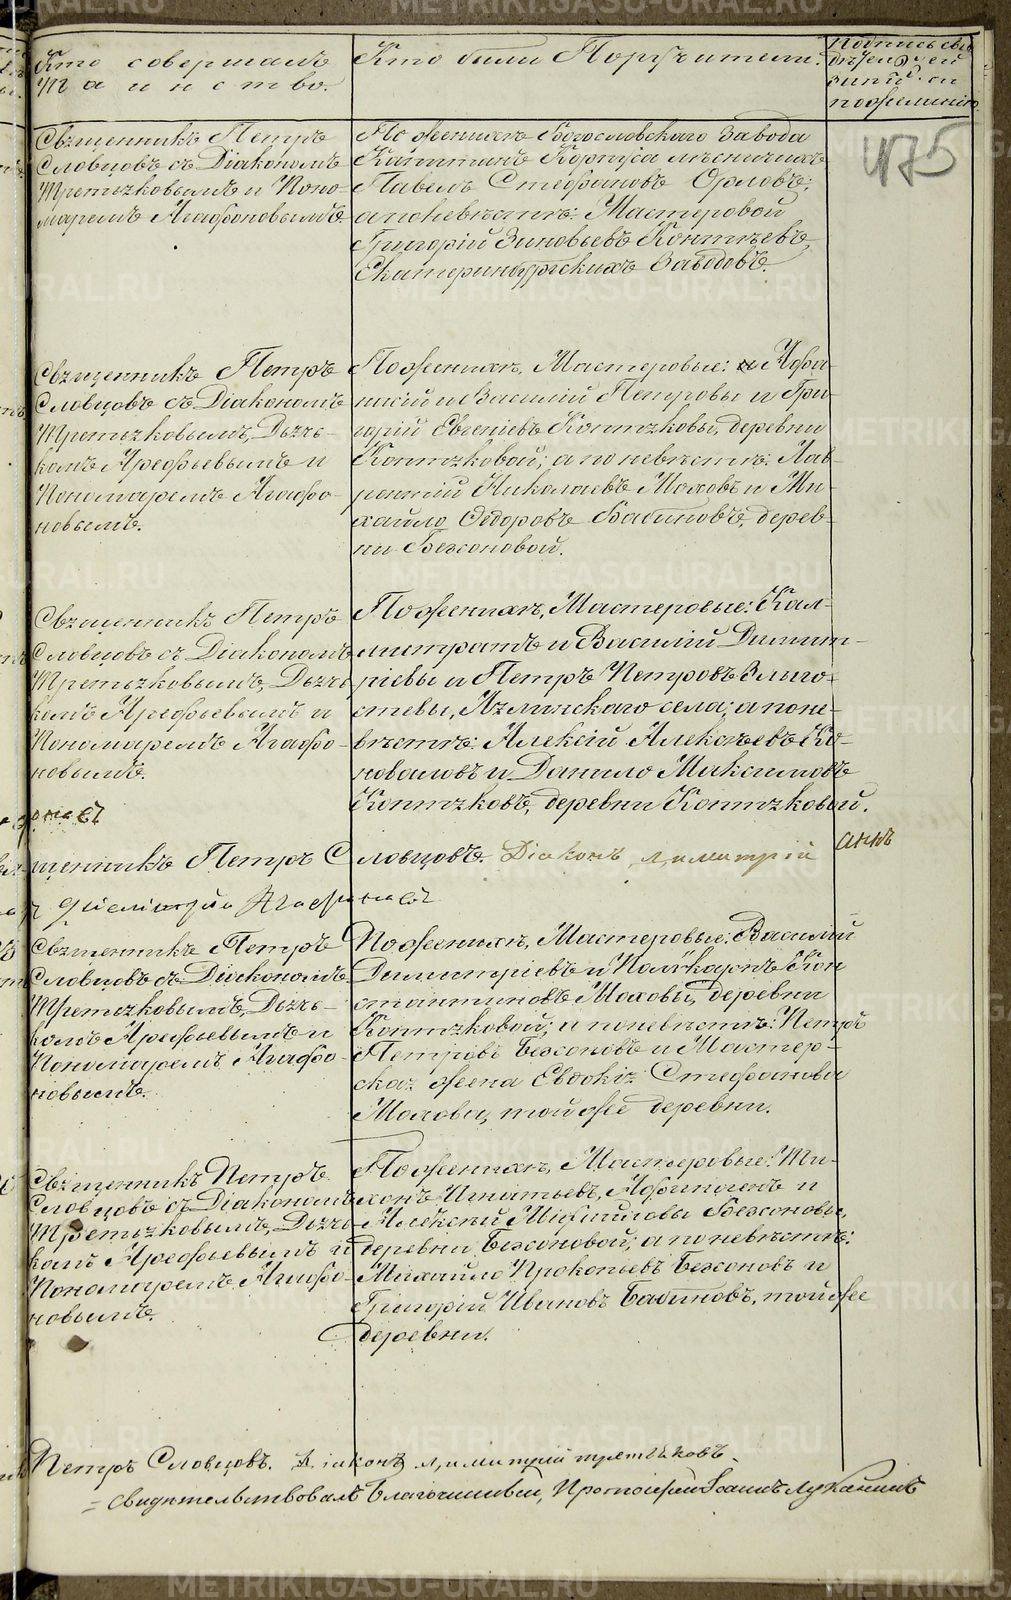 METRIKI.GASO-URAL.RU
Кто совершалъ
Таинство.
Кто были Поручители.
Подпись сви
дѣтелей
записи по
желанію
475
Священникъ Петръ
Словцовъ съ Діакономъ
Третьяковымъ и Поно-
маремъ Агафоновымъ.
По женихѣ Богословскаго Завода
Капитанъ Корпуса лѣсничихъ
Павелъ Стефановъ Орловъ;
а по невѣстѣ: Мастеровой
Григорій Зиновьевъ Коптѣевъ
Екатеринбургскихъ Заводовъ.
Священникъ Петръ
Словцовъ съ Діакономъ
Третьяковымъ, Дьяч-
комъ Арефьевымъ и
Пономаремъ Агафо-
новымъ.
По женихѣ, Мастеровые: Афа-
насій и Василій Петровы и Гри-
горій Евгеніевъ Коптяковы, деревни
Коптяковой; а по невѣстѣ: Лав-
рентій Николаевъ Маховъ и Ми-
хайло Ѳедоровъ Бабиновъ, дерев-
ни Безсоновой.
Священникъ Петръ
Словцовъ съ Діакономъ
Третьяковымъ, Дьяч-
комъ Арефьевымъ и
Пономаремъ Агафо-
новымъ.
По женихѣ, Мастеровые: Кал-
листратъ и Василій Димит-
ріевы и Петръ Петровъ Злыго-
стевы, Аятскаго села; а по не-
вѣстѣ: Алексій Алексѣевъ Ко-
новаловъ и Данило Максимовъ
Коптяковъ, деревни Коптяковой.
щенникъ Петръ Словцовъ. Діаконъ Димитрій
Священникъ Петръ
Словцовъ съ Діакономъ
Третьяковымъ, Дьяч-
комъ Арефьевымъ и
Пономаремъ Агафо-
новымъ.
По женихѣ, Мастеровые: Василій
Димитріевъ и Поликарпъ Кон
стантиновъ Маховы, деревни
Коптяковой; а по невѣстѣ: Петръ
Петровъ Безсоновъ и Мастер-
ская жена Евдокія Стефанова
Махова, той же деревни.
Священникъ Петръ
Словцовъ съ Діакономъ
Третьяковымъ, Дьяч-
комъ Арефьевымъ и
Пономаремъ Агафо-
новымъ.
По женихѣ, Мастеровые: Ти-
хонъ Игнатьевъ, Афиногенъ и
Алексій Михайловы Безсоновы,
деревни Безсоновой; а по невѣстѣ:
Михайло Прокопьевъ Безсоновъ и
Григорій Ивановъ Бабиновъ, той же
деревни.
Петръ Словцовъ. Діаконъ Димитрій Третьяковъ.
Свидетельствовалъ Благочинный, Протоіерей Іоаннъ Луканинъ